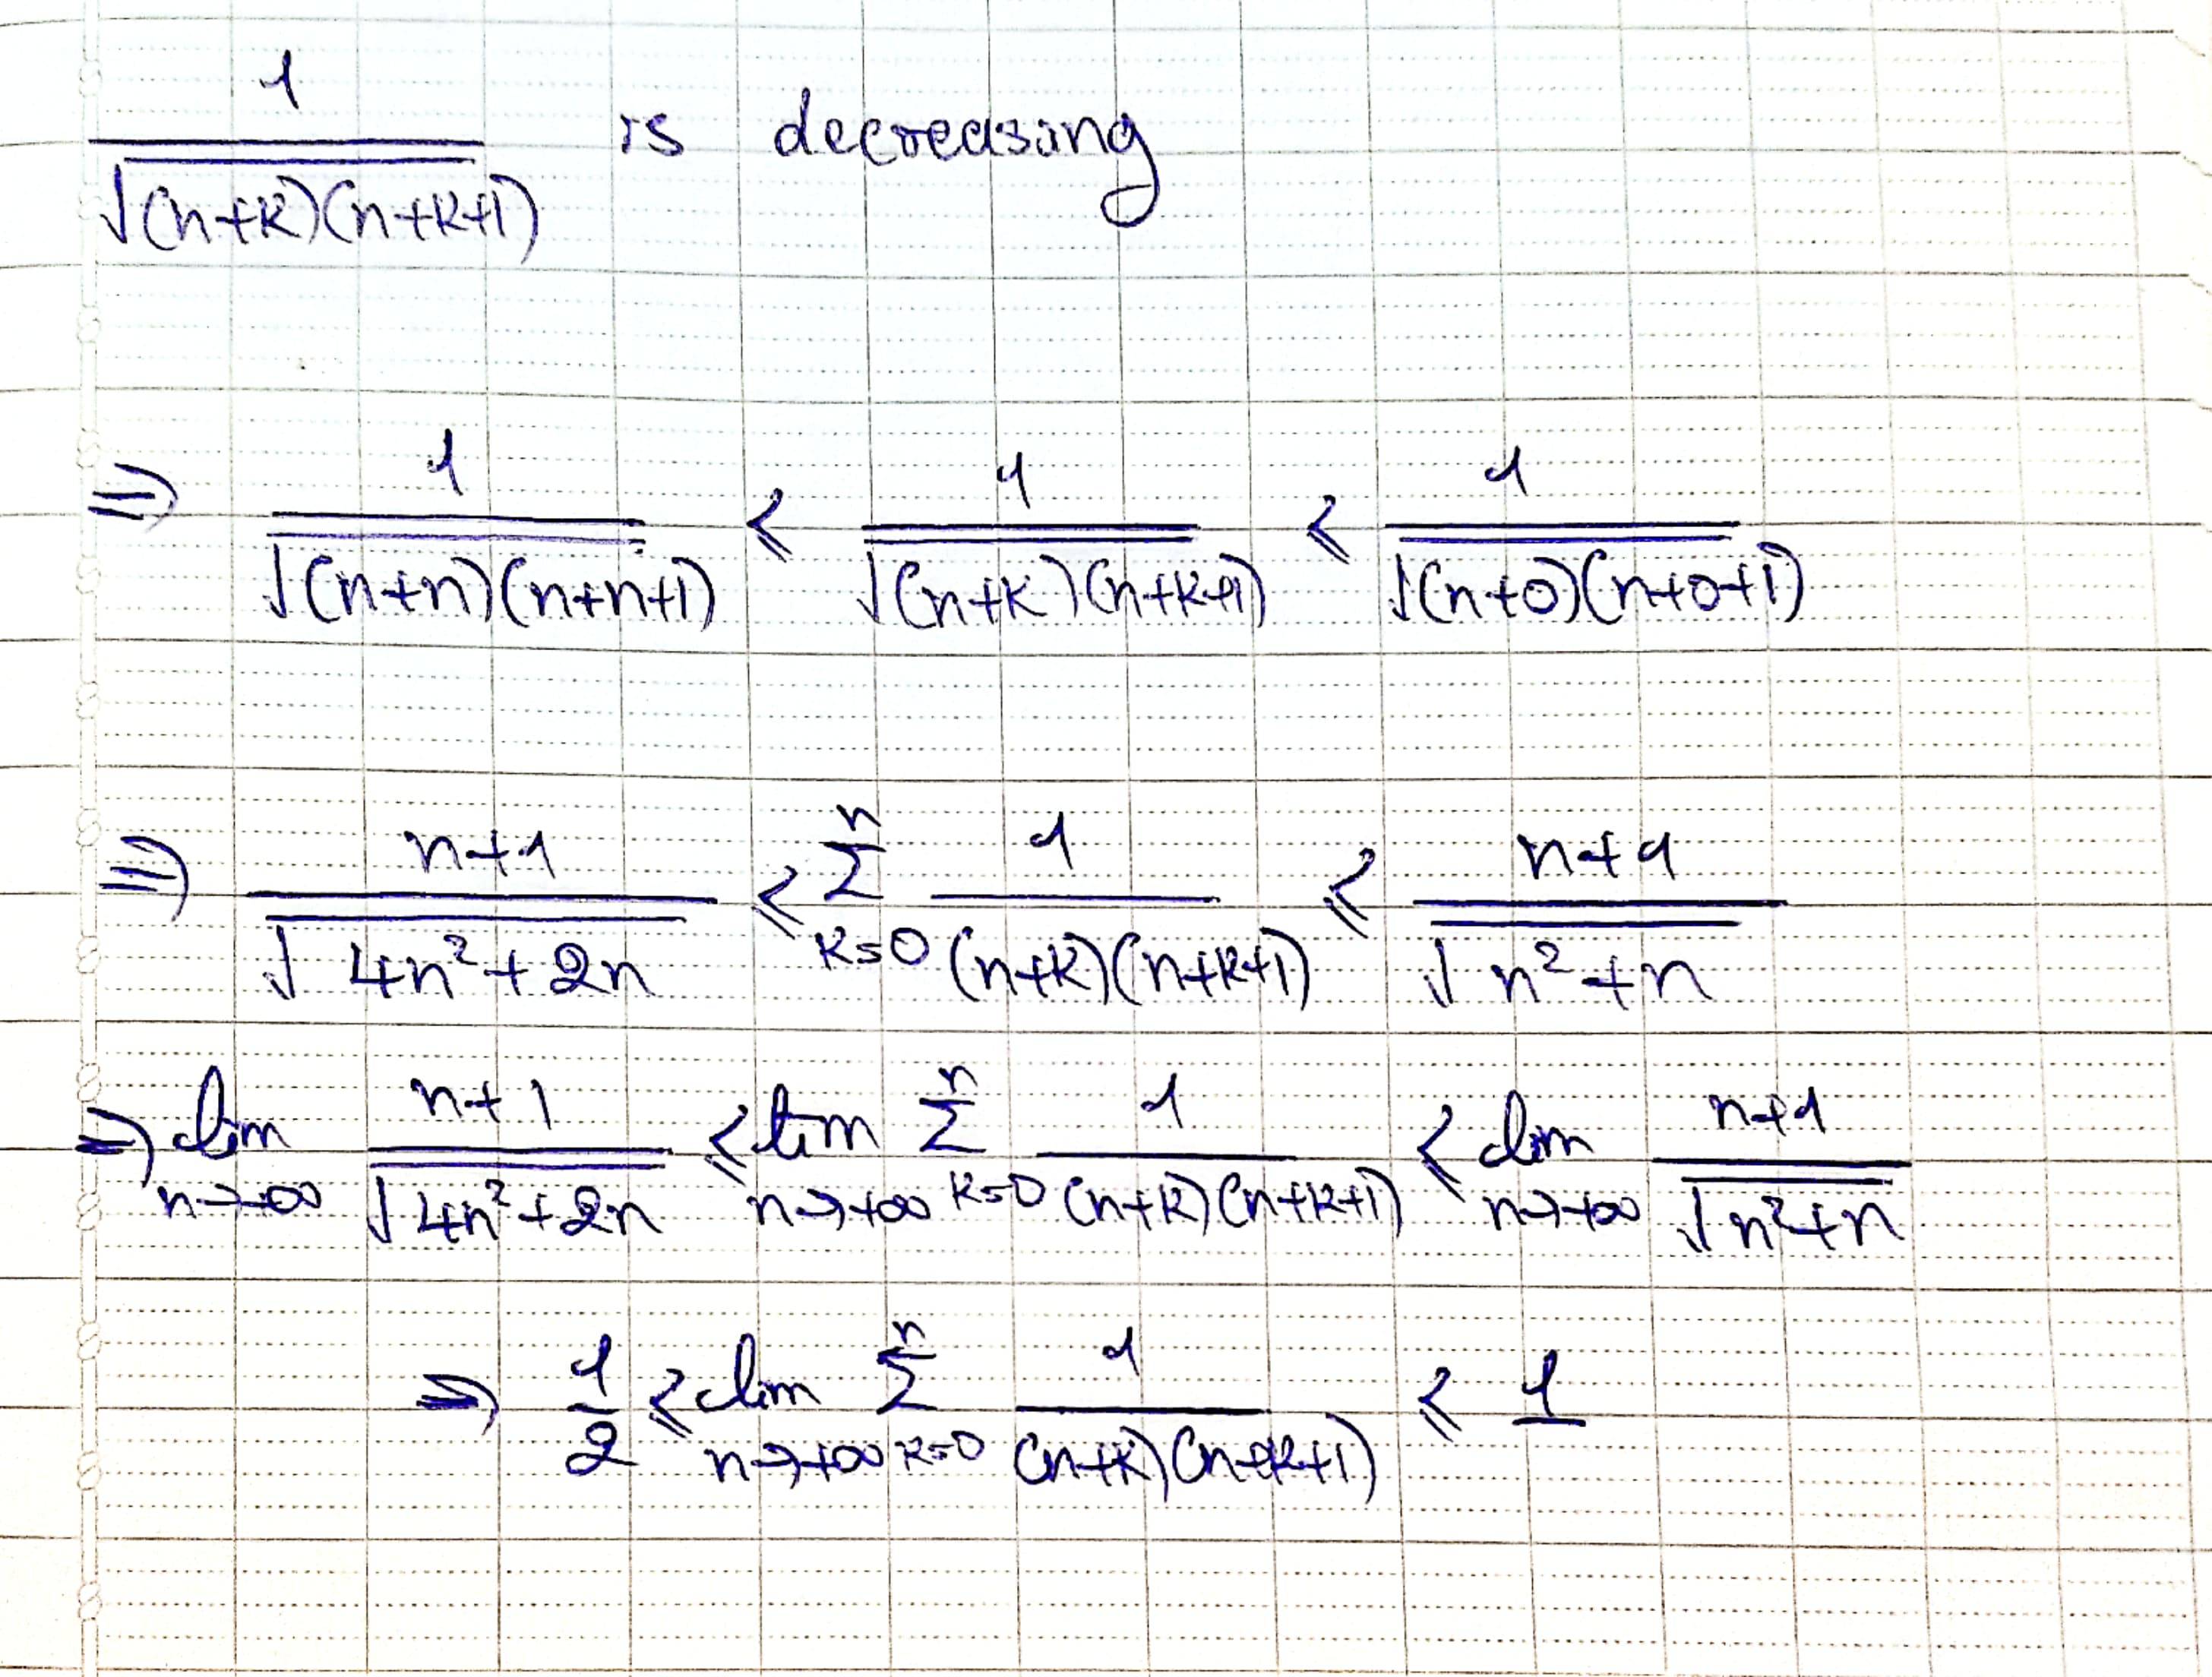 1/√((n+k)(n+k+1)) is decreasing
⇒ 1/√((n+n)(n+n+1)) ⩽ 1/√((n+k)(n+k+1)) ⩽ 1/√((n+0)(n+0+1))
⇒ (n+1)/√(4n²+2n) ⩽ Σ_{k=0}^{n} 1/((n+k)(n+k+1)) ⩽ (n+1)/√(n²+n)
⇒ lim_{n→+∞} (n+1)/√(4n²+2n) ⩽ lim_{n→+∞} Σ_{k=0}^{n} 1/((n+k)(n+k+1)) ⩽ lim_{n→+∞} (n+1)/√(n²+n)
⇒ 1/2 ⩽ lim_{n→+∞} Σ_{k=0}^{n} 1/((n+k)(n+k+1)) ⩽ 1